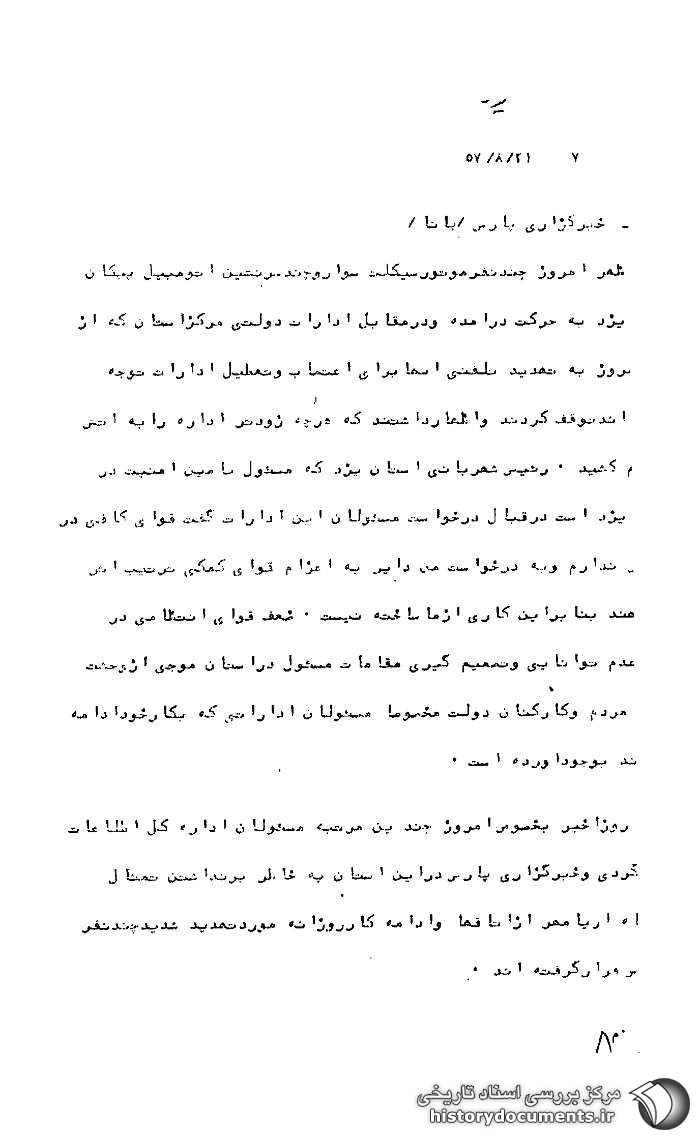 ۷ ۵۷/۸/۲۱
ـ خبرگزاری پارس /پانا /
ظهر امروز چندنفرموتورسیکلت سواروچندسرنشین اتومبیل پیکان
یزد به حرکت درامده ودرمقابل ادارات دولتی مرکزاستان که از
به تهدید تلفنی انها برای اعتصاب وتعطیل ادارات توجه
اندتوقف کردند واظهارداشتند که هرچه زودتر اداره رابه اتش
م کشید ۰ رئیس شهربانی استان یزد که مسئول تامین امنیت در
یزد است درقبال درخواست مسئولان این ادارات گفت قوای کافی در
ندارم وبه درخواست من دایر به اعزام قوای کمکی ترتیب اثر
هند بنابراین کاری ازماساخته نیست ۰ ضعف قوای انتظامی در
عدم توانایی وتصمیم گیری مقامات مسئول دراستان موجی ازوحشت
مردم وکارکنان دولت مخصوصا مسئولان اداراتی که بکارخودادامه
ند بوجوداورده است ۰
روزاخیر بخصوص امروز چندین مرتبه مسئولان اداره کل اطلاعات
گردی وخبرگزاری پارس دراین استان به خاطر برنداشتن تمثال
اه اریامهر ازاتاقها وادامه کارروزانه موردتهدید شدیدچندنفر
قرارگرفته اند ۰
مرکز بررسی اسناد تاریخی
historydocuments.ir